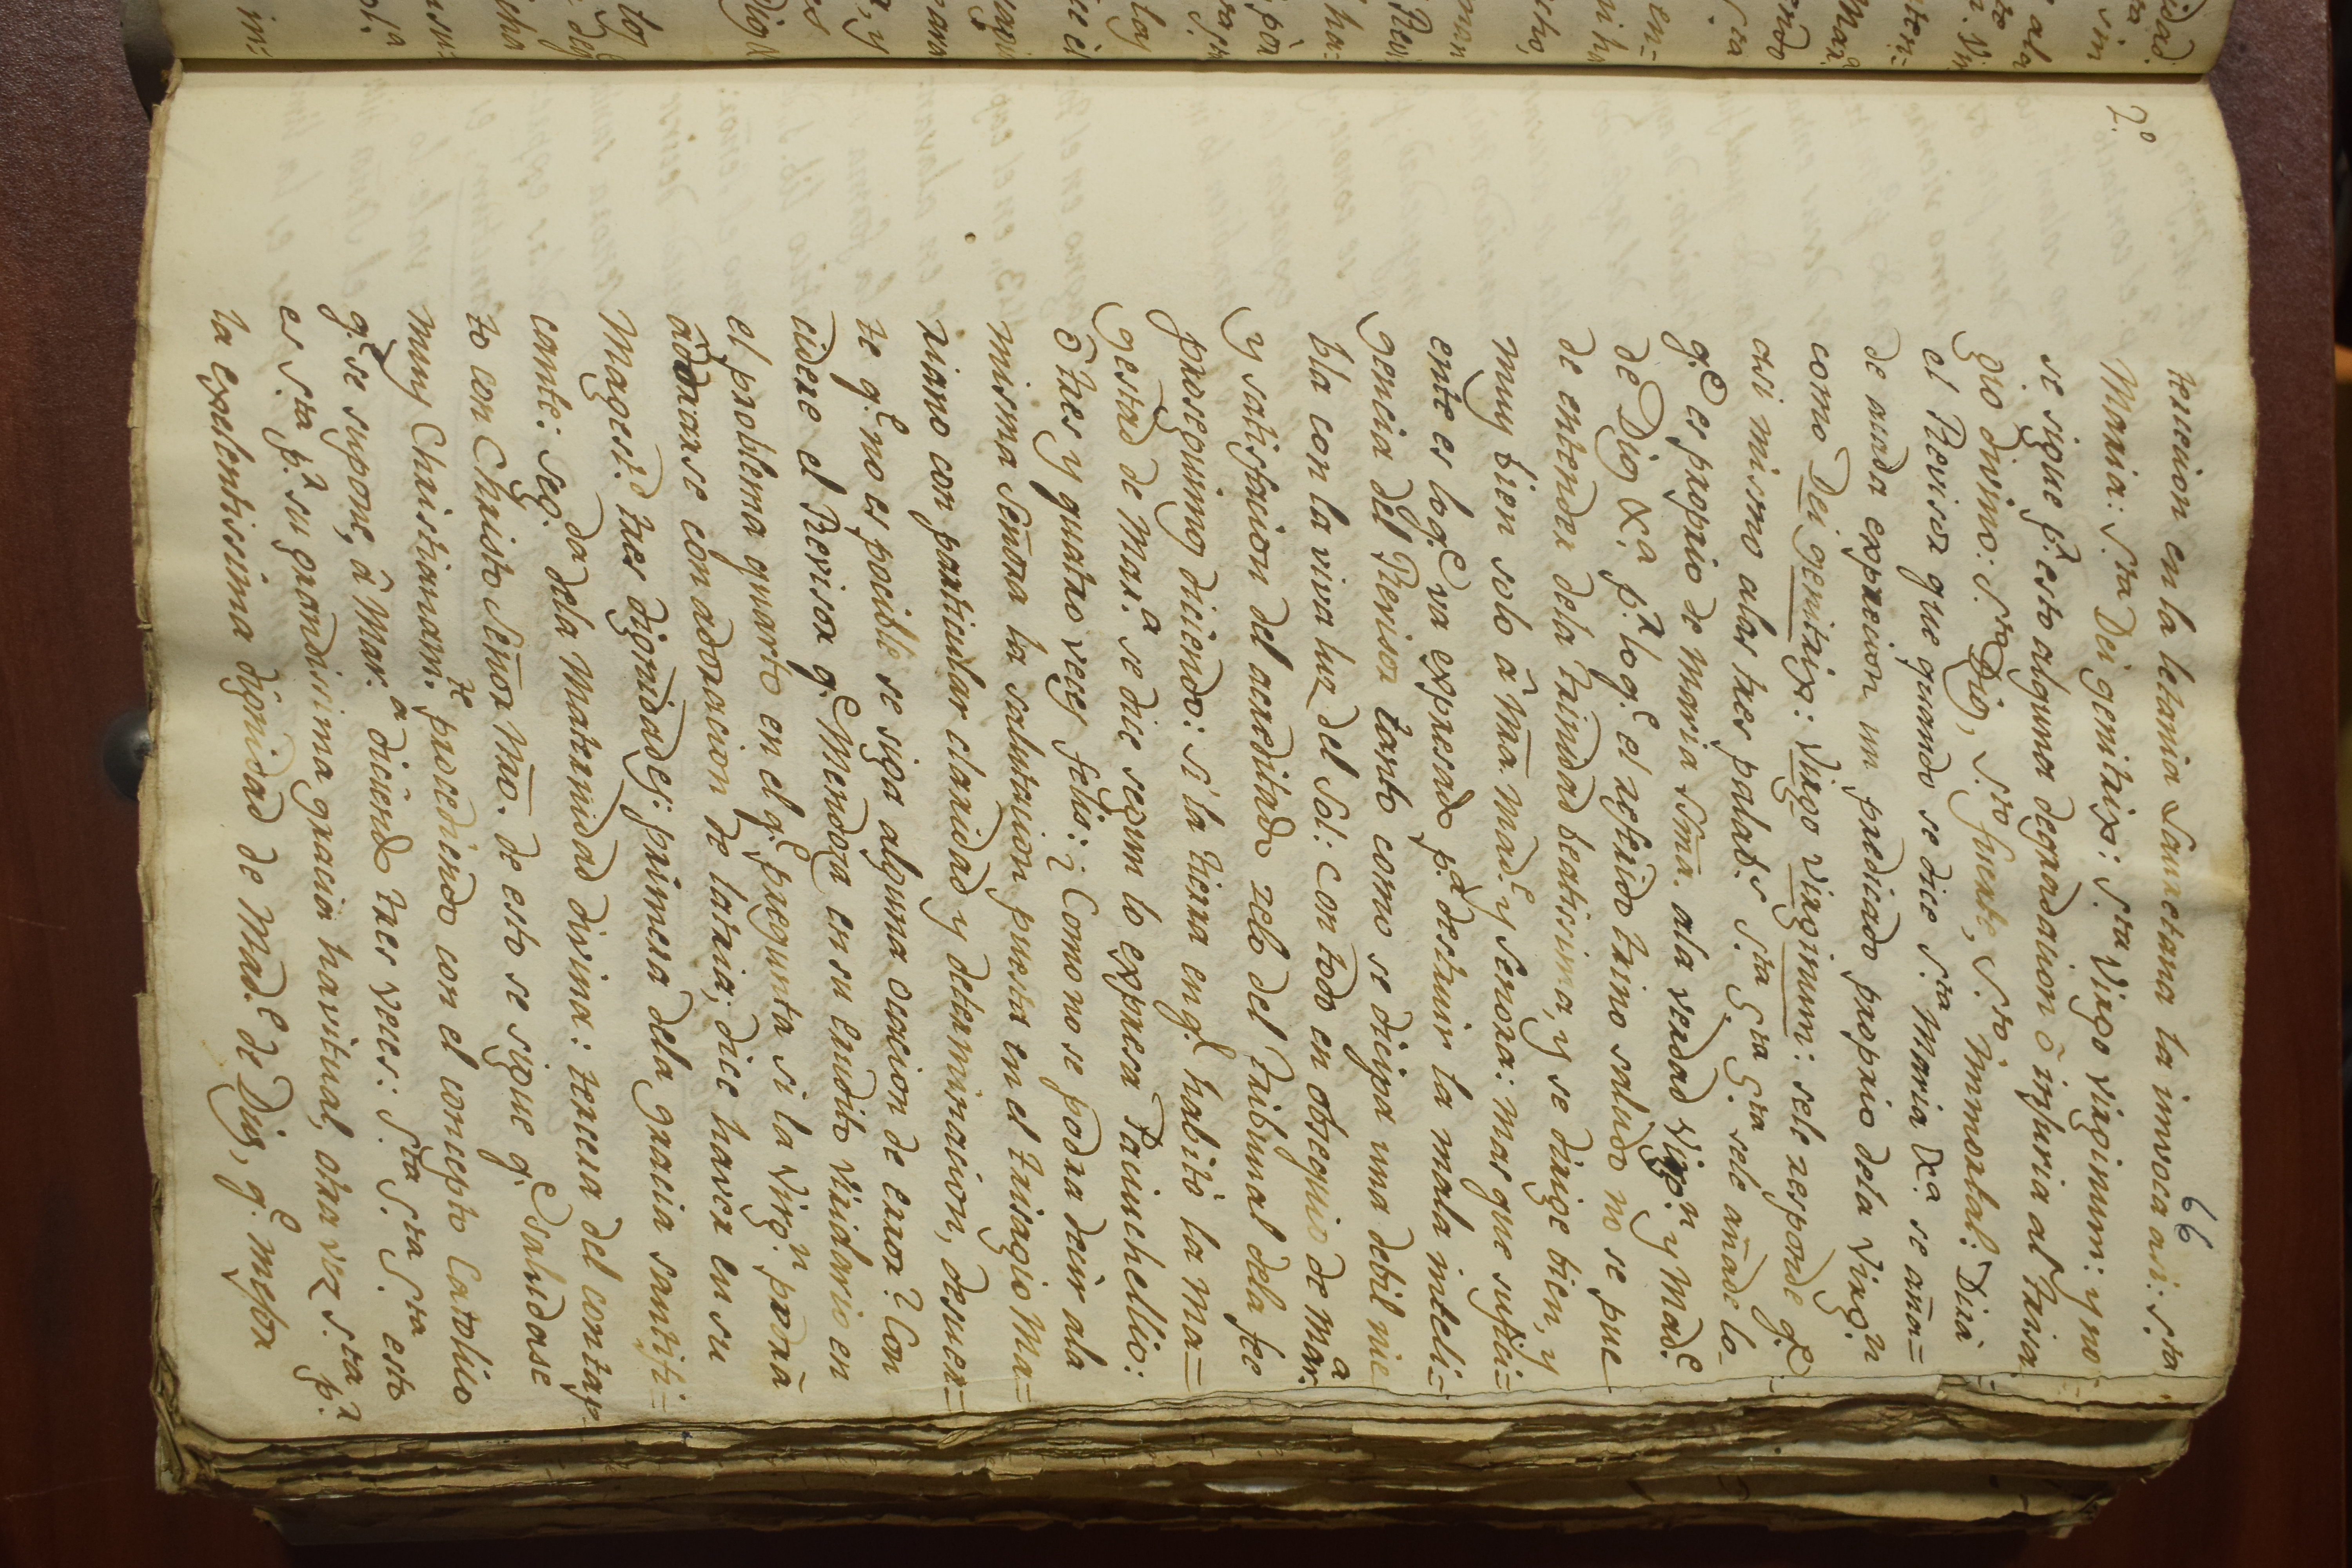 66
7.º
tercion en la letania Lauretana la invoca asi: S.ta
Maria: S.ta Dei genitrix: S.ta Virgo Virginum: y no
se sigue p.r esto alguna degradacion ô injuria al Trisa
gio divino: S.to Dios, S.to fuerte, S.to immortal: Dirà
el Revisor que quando se dice S.ta Maria &.a se aña=
de a cada exprecion un predicado proprio dela Virg.n
como Dei genitrix: Virgo Virginum: sele responde q.e
asi mismo alas tres palab.s S.ta S.ta S.ta sele añade lo
q.e es proprio de Maria Sma. ala verdad Virg.n y Mad.e
de Dios &.a p.r lo q.e el referido trino saludo no se pue
de entender dela trinidad beatissima, y se dirige bien, y
muy bien solo â Mra Mad.e y Señora: mas que sufici=
ente es loq.e va expresado p.a destruir la mala inteli=
gencia del Revisor tanto como se disipa una debil nie
bla con la viva luz del Sol: con todo en obsequio de Mar.a
y satisfacion del acreditado zelo del tribunal dela fee
proseguimos diciendo: si la tierra en q.e habitò la Ma=
gestad de Mar.a se dice segun lo expresa Pacinchellio:
ô tres y quatro veces felis: ¿Como no se podra decir ala
misma Señora la salutacion puesta en el trisagio Ma=
riano con particular claridad y determinacion, desuer=
te q.e no es pocible se siga alguna ocacion de error? Con
cidere el Revisor q.e Mendoza en su erudito viridario en
el problema quarto en el q.e pregunta si la Virg.n podrà
adorarse con adoracion de latria, dice haver en su
Magest.d tres dignidades: primera dela gracia santifi=
cante: seg.da dela Maternidad divina: tercera del contac
to con Christo Señor Mro. de esto se sigue q.e saludase
muy Christianam.te procediendo con el concepto Catolico
q.e se supone, â Mar.a diciendo tres veces: S.ta S.ta S.ta esto
es S.ta p.r su grandisima gracia havitual, otra vez S.ta p.r
la exelentissima dignidad de Mad.e de Dios, q.e mejor